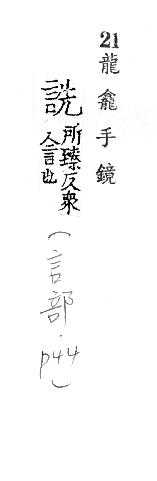 21龍龕手鏡
詵所臻反衆
人言也
(言部.
p44)